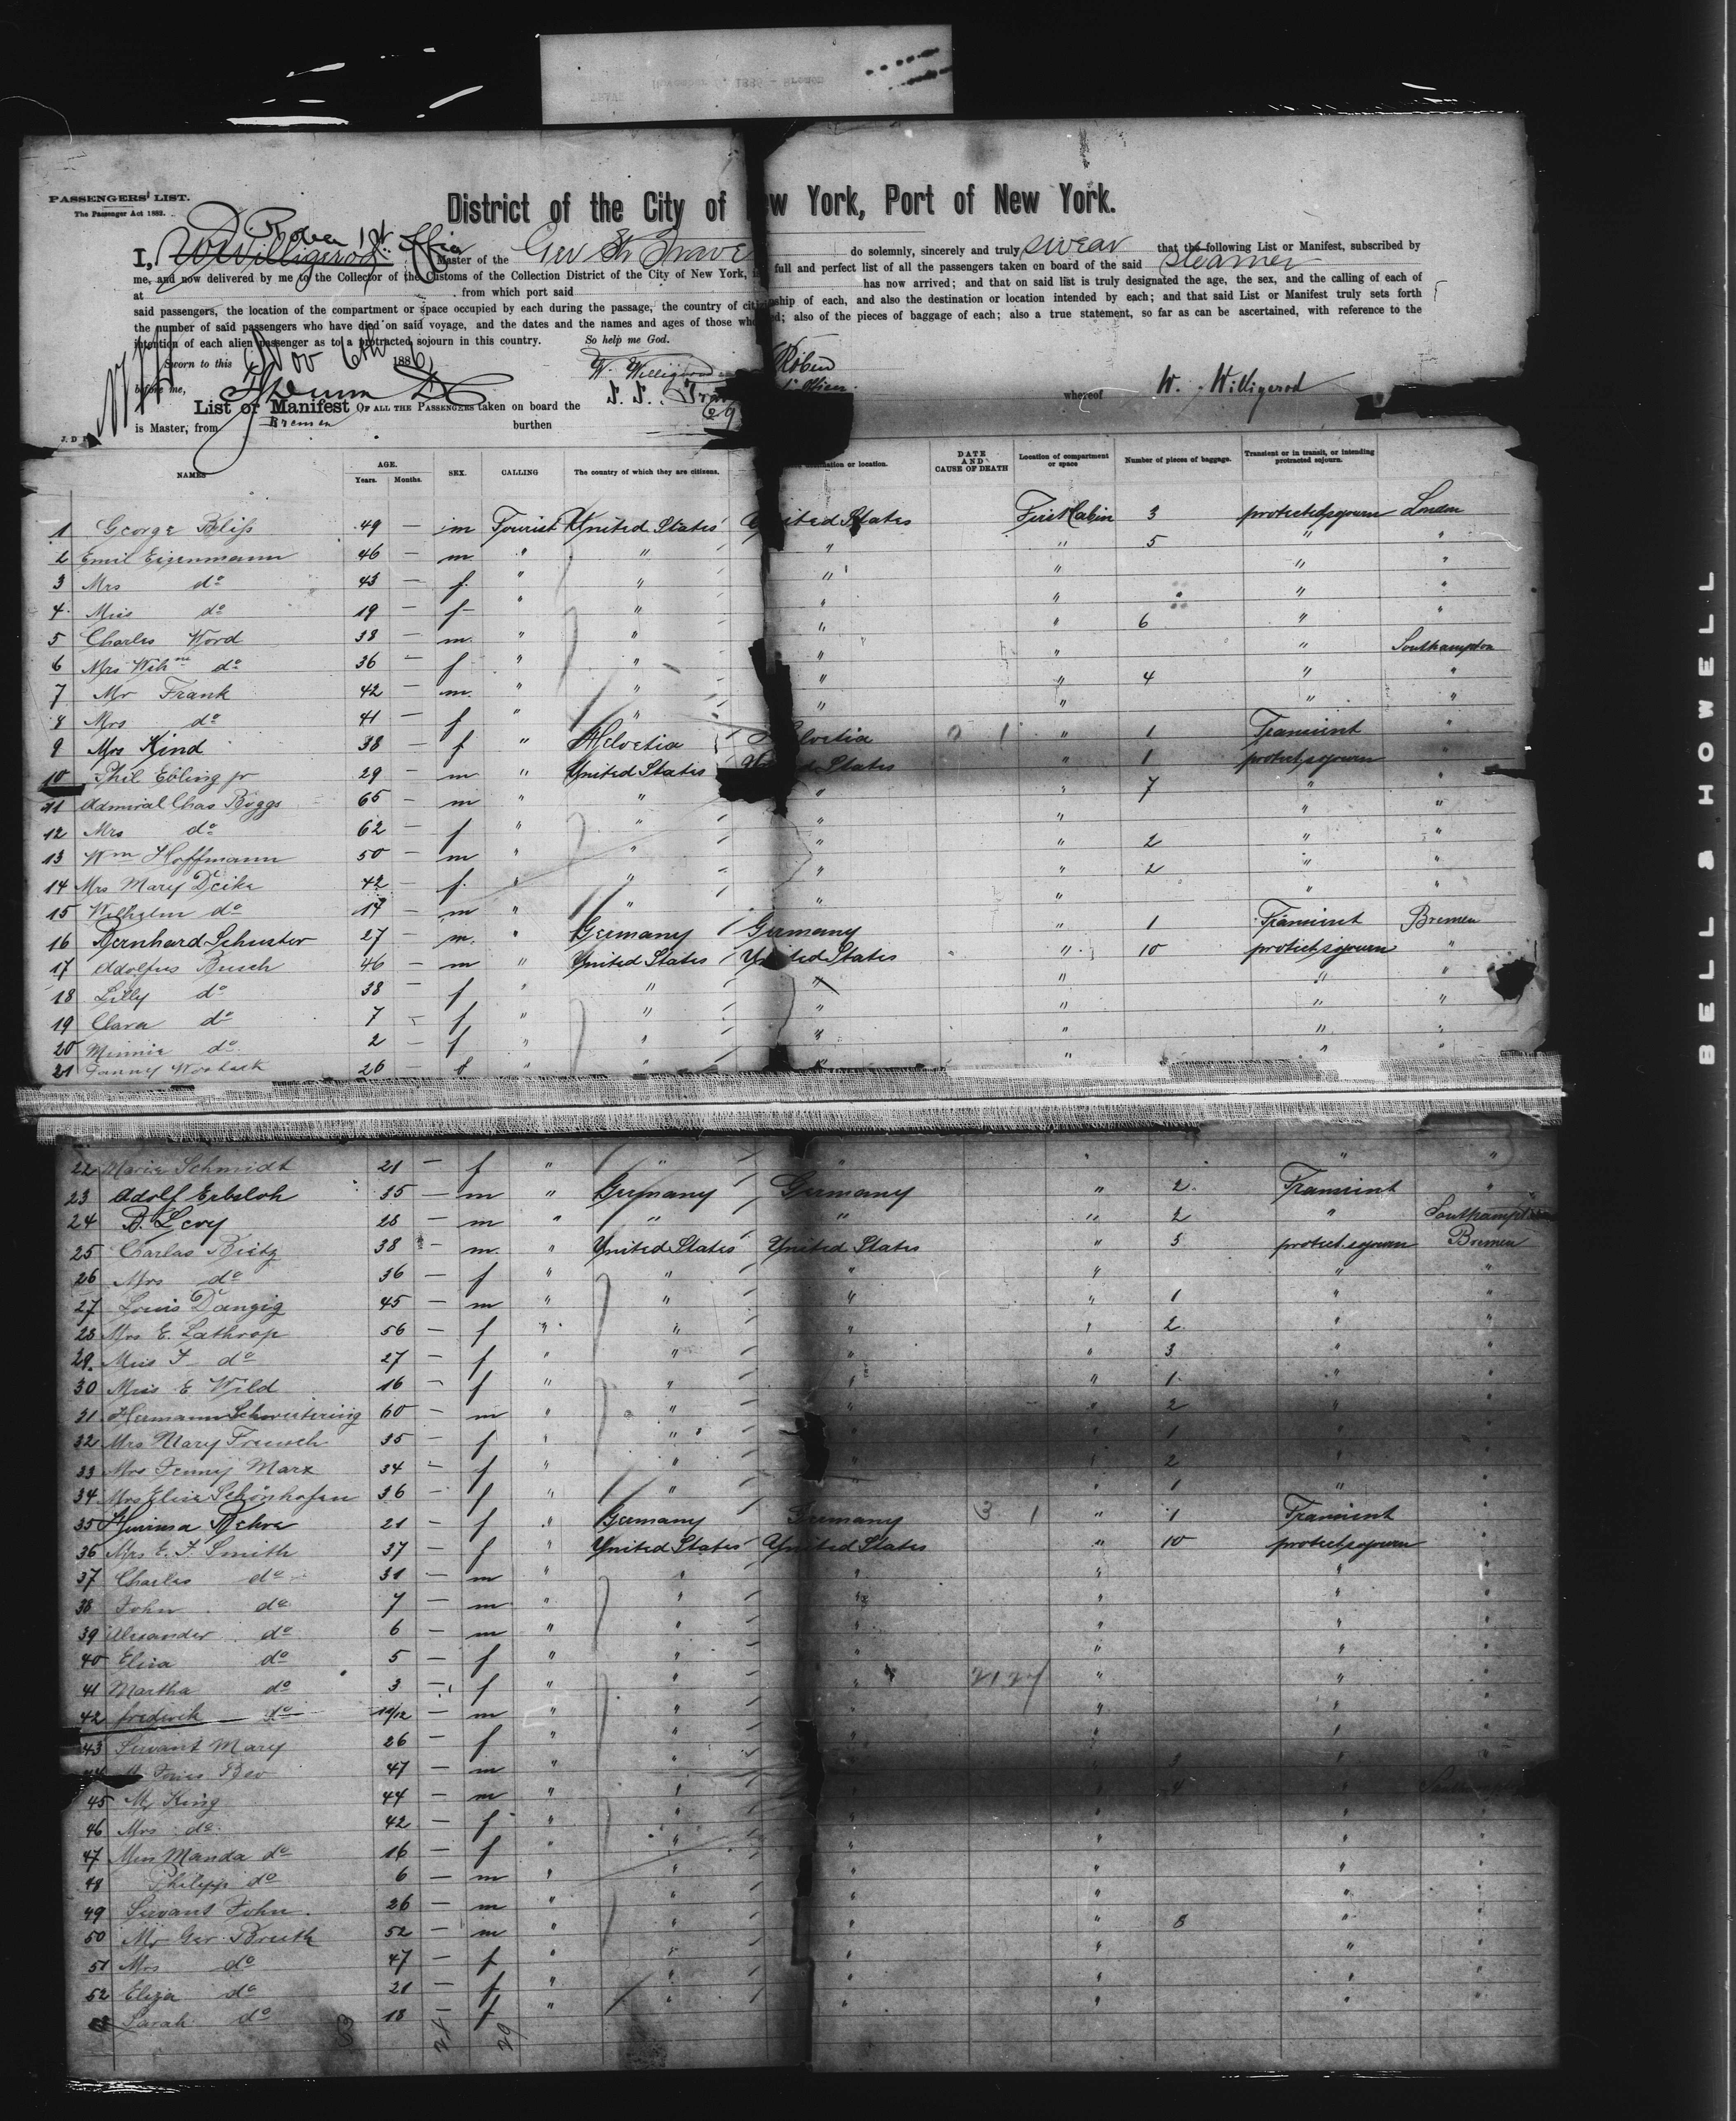 November 6, 1886 - Bremen
TRAVE
PASSENGERS' LIST.
The Passenger Act 1882.
District of the City of New York, Port of New York.
I, W Willigerod Master of the Ger Str Trave do solemnly, sincerely and truly swear that the following List or Manifest, subscribed by
me, and now delivered by me to the Collector of the Customs of the Collection District of the City of New York, full and perfect list of all the passengers taken on board of the said steamer
at from which port said has now arrived; and that on said list is truly designated the age, the sex, and the calling of each of
said passengers, the location of the compartment or space occupied by each during the passage, the country of citizenship of each, and also the destination or location intended by each; and that said List or Manifest truly sets forth
the number of said passengers who have died on said voyage, and the dates and the names and ages of those who died; also of the pieces of baggage of each; also a true statement, so far as can be ascertained, with reference to the
intention of each alien passenger as to a protracted sojourn in this country. So help me God.
Sworn to this Nov 6th 1886
before me, W. Willigerod
List or Manifest OF ALL THE PASSENGERS taken on board the S. S. Trave whereof W. Willigerod
is Master, from Bremen burthen
NAMES AGE. Years. Months. SEX. CALLING The country of which they are citizens. destination or location. DATE AND CAUSE OF DEATH Location of compartment or space Number of pieces of baggage. Transient or in transit, or intending protracted sojourn.
1 George Bliss 49 — m Tourist United States United States First Cabin 3 protract sojourn London
2 Emil Eisenmann 46 — m " " " " 5 " "
3 Mrs do 43 — f " " " " " "
4 Miss do 19 — f " " " " " "
5 Charles Word 38 — m " " " " 6 " "
6 Mrs do 36 — f " " " " " Southampton
7 Mr Frank 42 — m " " " " 4 " "
8 Mrs do 41 — f " " " " " "
9 Mrs Kind 38 — f " Helvetia Helvetia " 1 Transient "
10 Phil Ebling jr 29 — m " United States United States " 1 protract sojourn "
11 Admiral Chas Boggs 65 — m " " " " 7 " "
12 Mrs do 62 — f " " " " " "
13 Wm Hoffmann 50 — m " " " " 2 " "
14 Mrs Mary Deike 42 — f " " " " 2 " "
15 Wilhelm do 17 — m " " " " " "
16 Bernhard Schuster 27 — m " Germany Germany " 1 Transient Bremen
17 Adolfus Busch 46 — m " United States United States " 10 protract sojourn "
18 Lilly do 38 — f " " " " " "
19 Clara do 7 — f " " " " " "
20 Minnie do 2 — f " " " " " "
21 Fanny 26 — f " " " " " "
22 Marie Schmidt 21 — f " " " " " "
23 Adolf Erbsloh 35 — m " Germany Germany " 2 Transient "
24 B. Levy 28 — m " " " " 2 " Southampton
25 Charles Rietz 38 — m " United States United States " 5 protract sojourn Bremen
26 Mrs do 36 — f " " " " " "
27 Louis Danzig 45 — m " " " " 1 " "
28 Mrs E. Lathrop 56 — f " " " " 2 " "
29 Miss F do 27 — f " " " " 3 " "
30 Miss E Wild 16 — f " " " " 1 " "
31 Hermann Schwietering 60 — m " " " " 2 " "
32 Mrs Mary 35 — f " " " " 1 " "
33 Mrs Jenny Marx 34 — f " " " " 2 " "
34 Mrs Elise Schönhofen 36 — f " " " " 1 " "
35 21 — f " Germany Germany 3 1 " 1 Transient "
36 Mrs E. F. Smith 37 — f " United States United States " 10 protract sojourn "
37 Charles do 31 — m " " " " " "
38 John do 7 — m " " " " " "
39 Alexander do 6 — m " " " " " "
40 Elisa do 5 — f " " " " " "
41 Martha do 3 — f " " " " " "
42 frederik do 10/12 — m " " " " " "
43 Servant Mary 26 — f " " " " " "
47 — m " " " " 3 "
45 Mr King 44 — m " " " " 4 " Southampton
46 Mrs do 42 — f " " " " " "
47 Miss Manda do 16 — f " " " " " "
48 Philipp do 6 — m " " " " " "
49 Servant John 26 — m " " " " " "
50 Mr Geo 52 — m " " " " 8 " "
51 Mrs do 47 — f " " " " " "
52 Eliza do 21 — f " " " " " "
53 Sarah do 18 — f " " " " " "
53 24 29
BELL & HOWELL